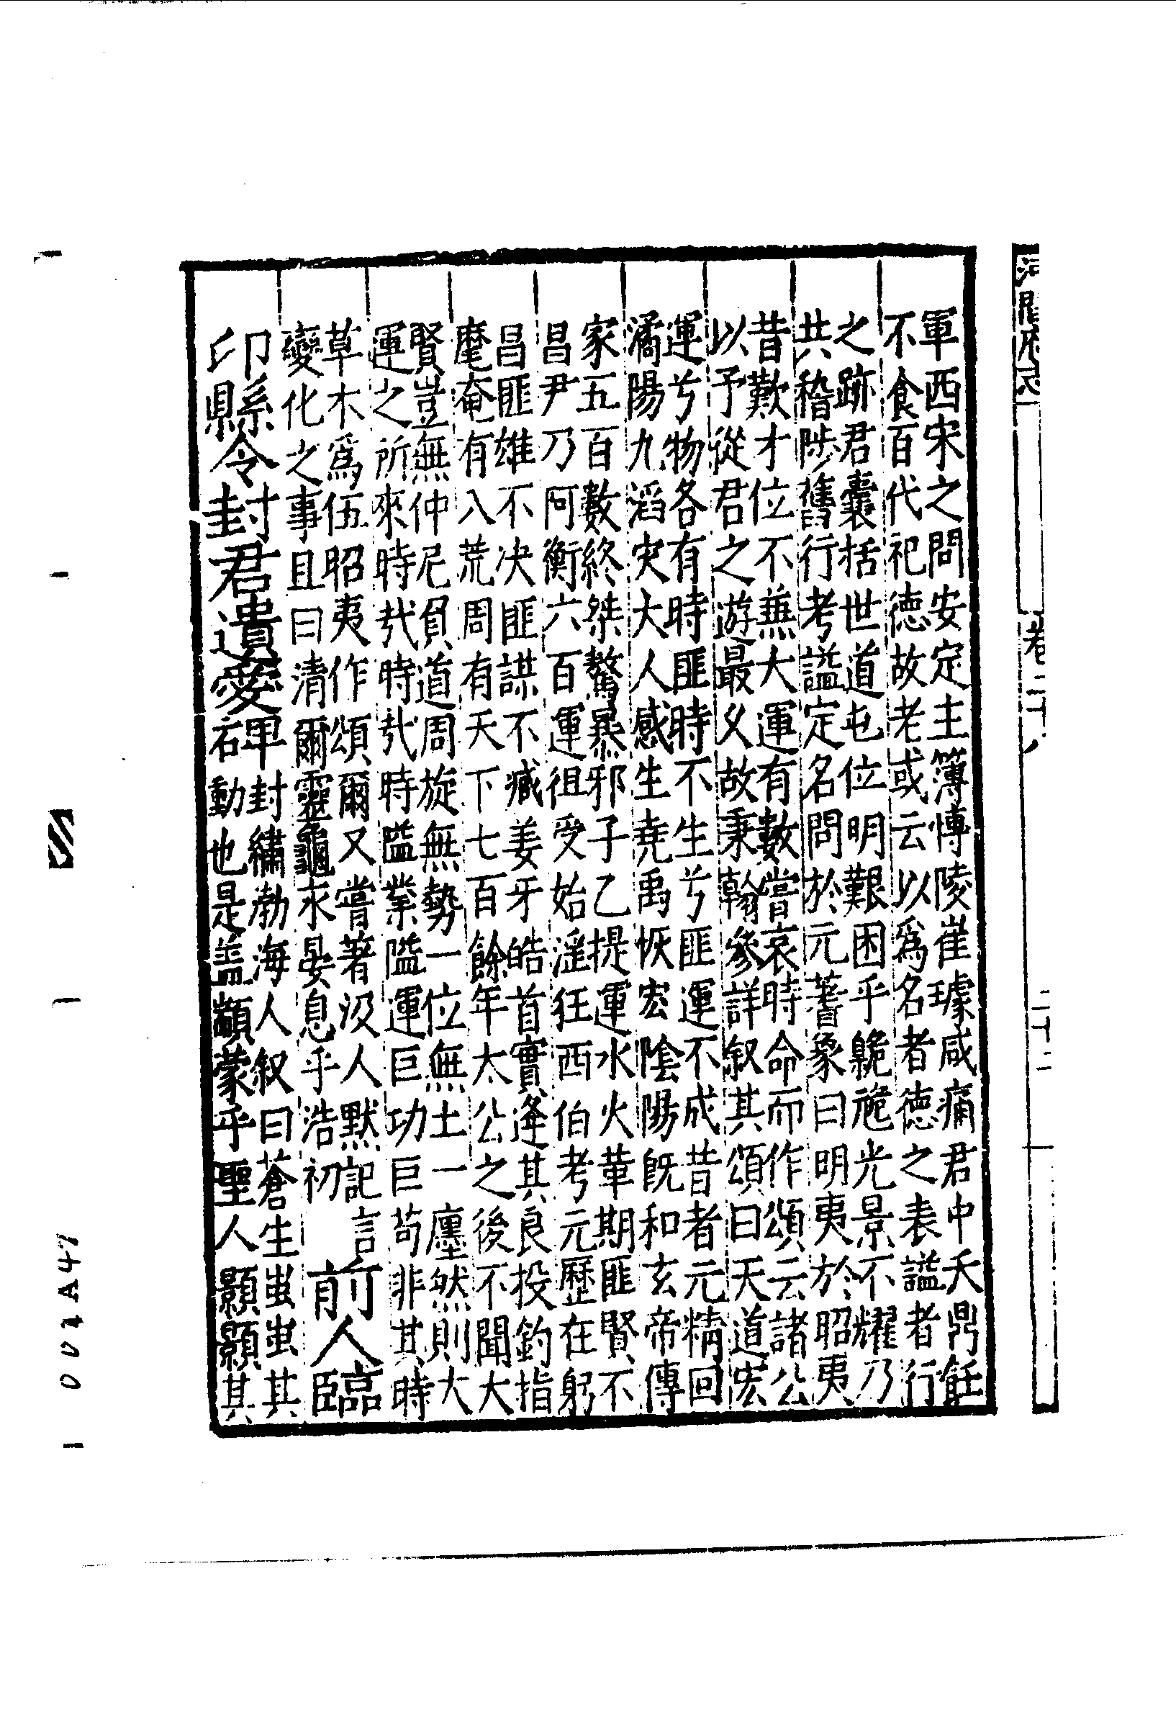 河間府志
卷二十八
二十二
軍西宋之問安定主簿博陵崔璩咸痛君中夭鼎飪
不食百代祀德故老或云以爲名者德之表謚者行
之跡君囊括世道屯位明艱困乎䠆卼光景不耀乃
共稽陟舊行考謚定名問於元蓍象曰明夷於昭夷
昔歎才位不無大運有數嘗哀時命而作頌云諸公
以予從君之遊最乆故秉翰參詳叙其頌曰天道宏
運兮物各有時匪時不生兮匪運不成昔者元精回
潏陽九滔灾大人感生堯禹恢宏陰陽旣和玄帝傳
家五百數終桀驁暴邪子乙提運水火革期匪賢不
昌尹乃阿衡六百運徂受始滛狂西伯考元歷在躬
昌匪雄不决匪謀不臧姜牙皓首實逄其良投釣指
麾奄有八荒周有天下七百餘年太公之後不聞大
賢豈無仲尼負道周旋無勢一位無土一廛然則大
運之所來時㢤時㢤時隘業隘運巨功巨茍非其時
草木爲伍昭夷作頌爾又嘗著汲人默記言
變化之事且曰清爾靈龜永晏息乎浩初 前人臨
卭縣令封君遺愛碑封繡渤海人叙曰蒼生䖝䖝其
動也是盖顓蒙乎聖人顥顥其
00nA47